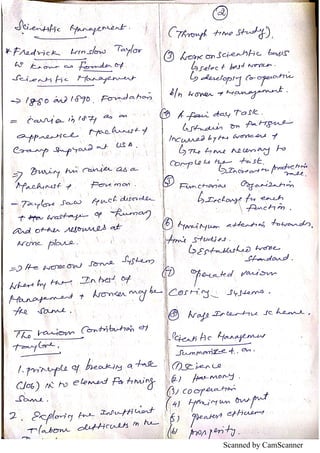 Scientific Management.
* Fredrick Winslow Taylor
is known as Founder of
Scientific Management
→ 1880 and 1890. Foundation
= Carrier in 1874 as an
apprentice Machinist &
Cramp Shipyard at USA.
=> During his carrier as a
Machinist & Foreman.
- Taylor saw much disorder
+ the wastage of human
and other resources at
work place.
=> He work on some System
where by the Interest of
Management & worker may be
the same.
The various Contribution of
Taylor.
1. principle of breaking a task
(Job) in to element for timing
Same.
2. Exploring the Insufficient
+ labour difficulties in the
2
(Through time study).
③ Work on Scientific basis
↳ Select best worker.
↳ developing co-operation
b/n worker & management.
④ A fair day Task.
↳ studies on fatigue
Incurred by the workers &
↳ The time necessary to
Complete the task.
↳ Increase production
rate.
⑤ Functional Organization
↳ Incharge for each
function.
⑥ Maximum attention towards
time studies.
↳ Established work
Standard.
⑦ Operated various
Costing Systems.
⑧ Wage Incentive scheme.
Scientific Management
Summarized on.
1) Science
2) Harmony
3) cooperation
4) Maximum output
5) greater efficiency
6) prosperity.
Scanned by CamScanner